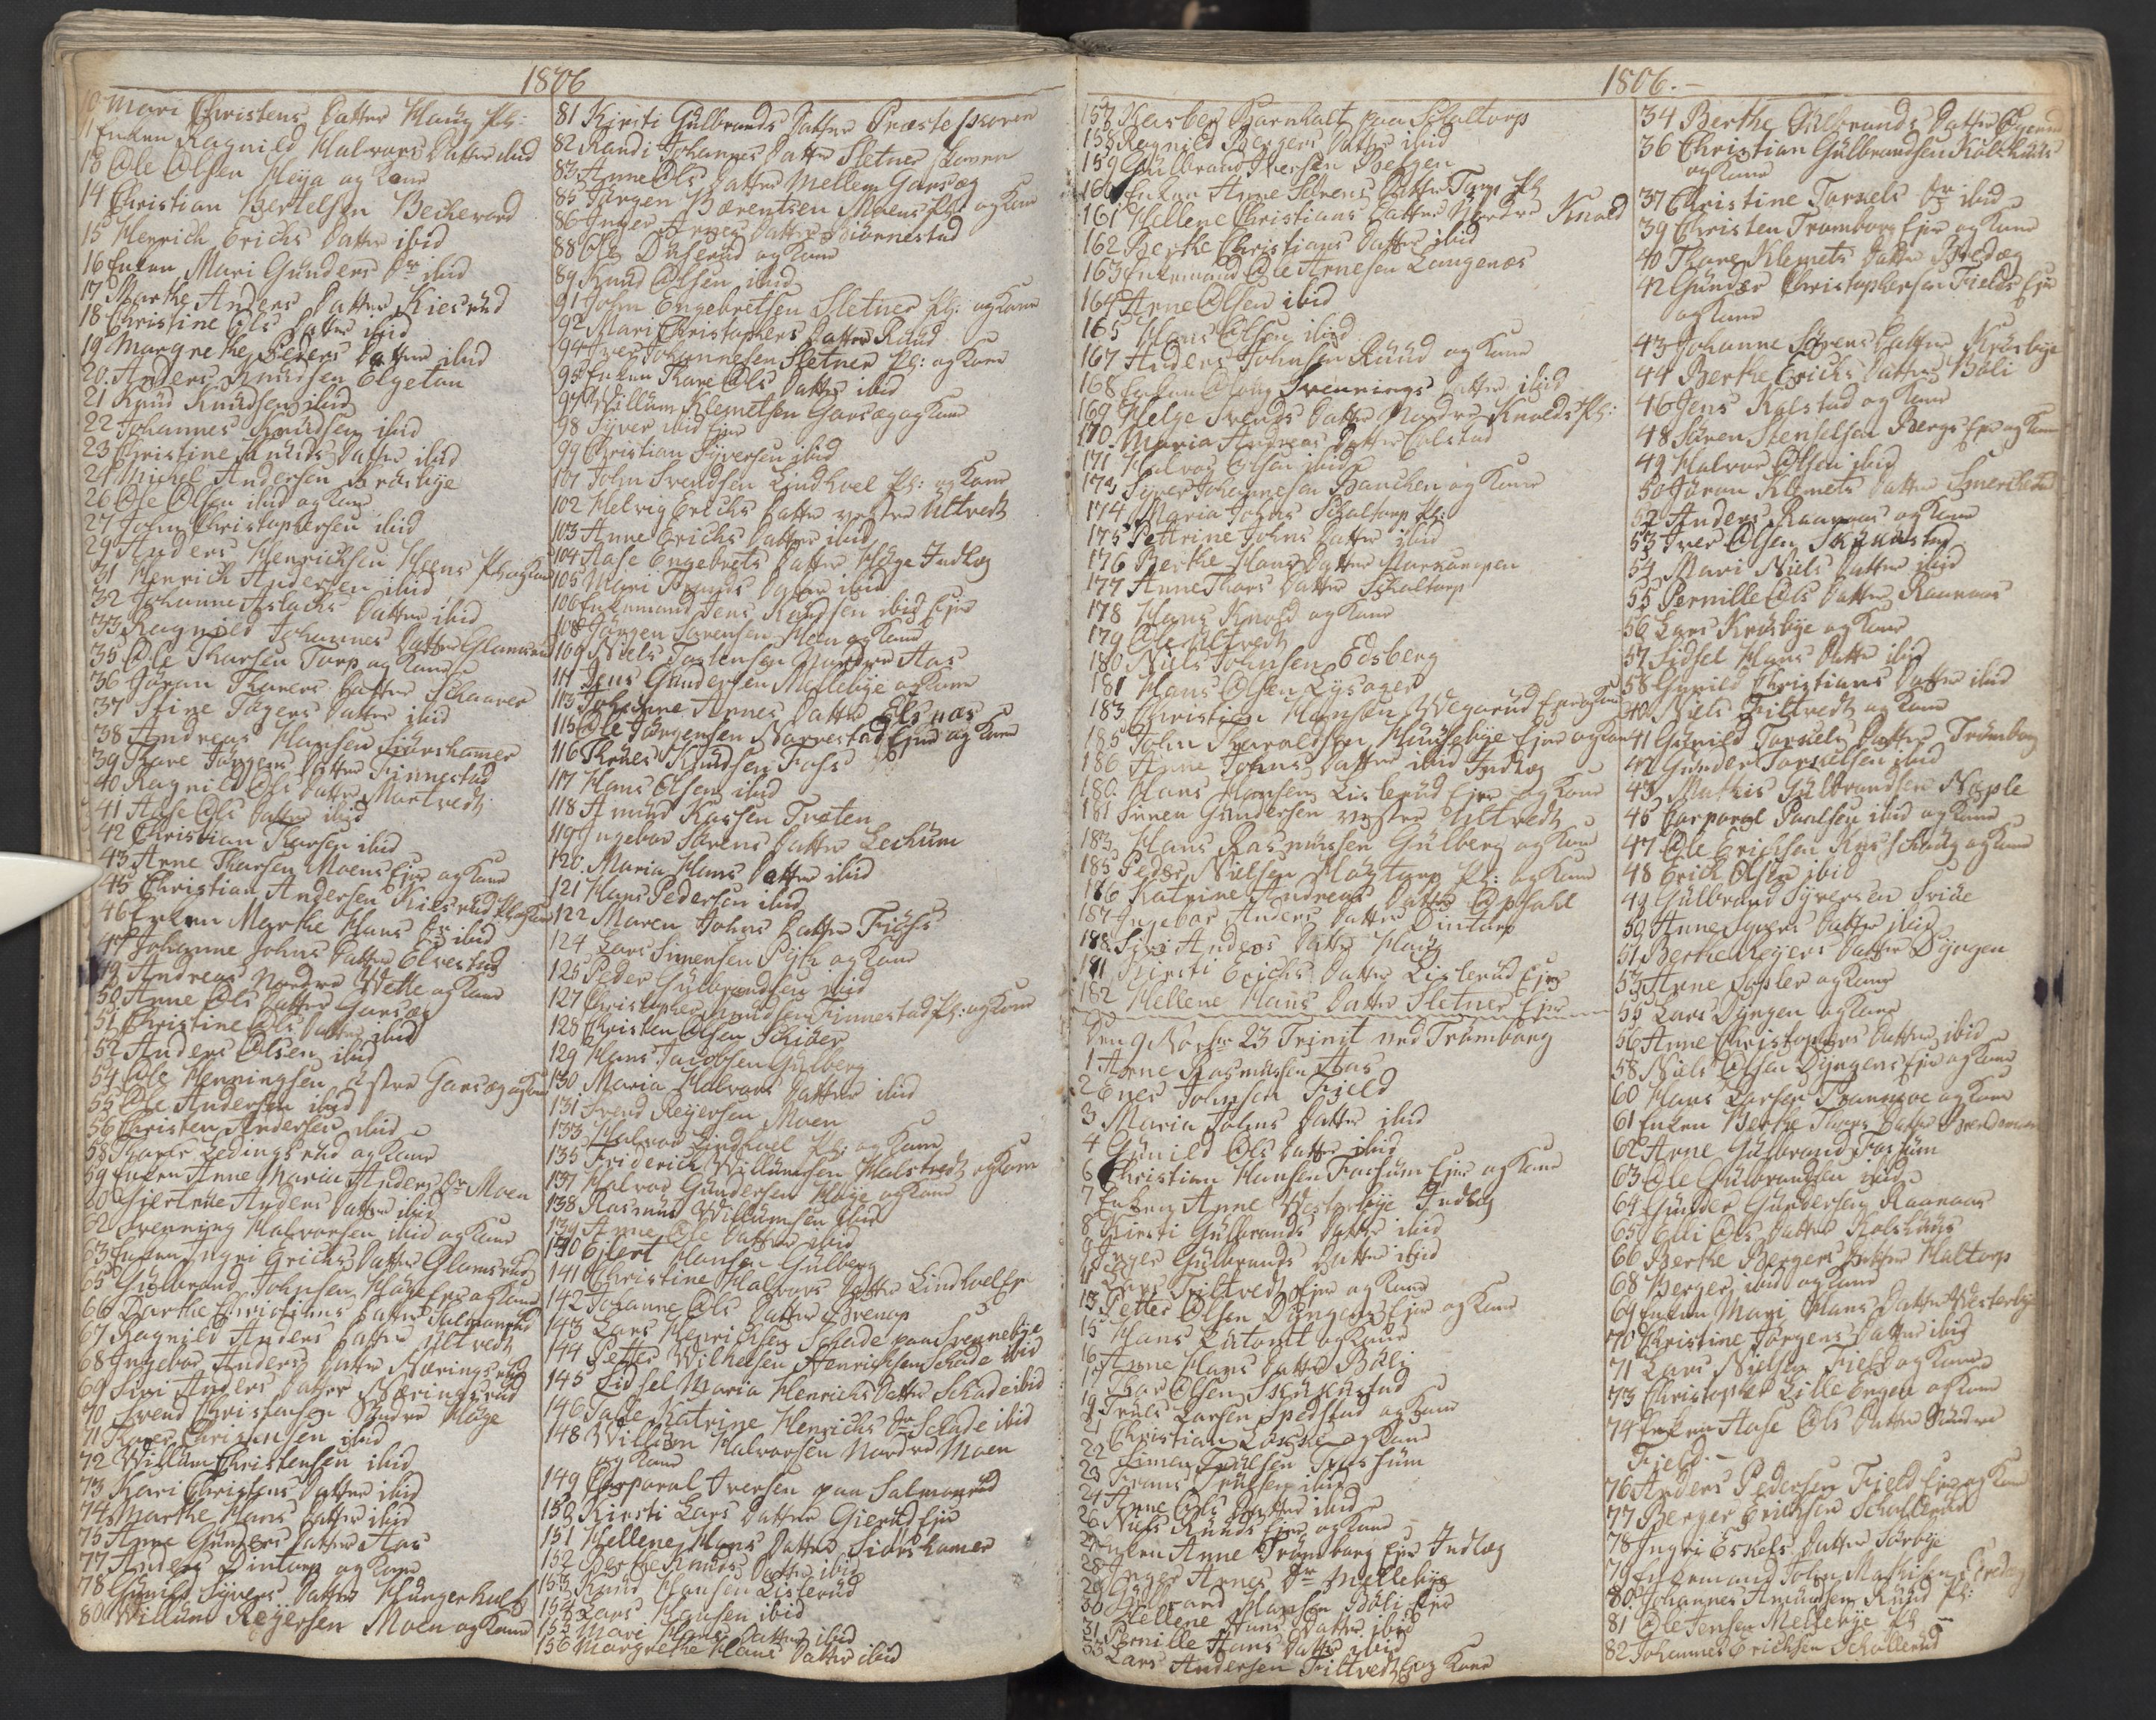 1806
10 Mari Christens Datter Haug Pl:
11 Enken Ragnild Halvors Datter ibid
13 Ole Olsen Heija og Kone
14 Christian Bertelsen Beckevord
15 Henrich Erichs Datter ibid
16 Enken Mari Gunders Dr ibid
17 Marthe Anders Datter Kiesrud
18 Christine Ols Datter ibid
19 Margrethe Peders Datter ibid
20. Anders Knudsen Elgetun
21 Knud Knudsen ibid
22 Johannes Knudsen ibid
23 Christine Knuds Datter ibid
24 Michel Andersen Krosbye
26 Ole Olsen ibid og Kone
27 John Christophersen ibid
29 Anders Henrichsen Heens Pl: og Kone
31 Henrich Andersen ibid
32 Johanne Aslachs Datter ibid
33 Ragnild Johannes Datter Glamsrud
35 Ole Tharsen Torp og Kone
36 Jöran Thores Datter Schaarer
37 Stine Tagers Datter ibid
38 Andreas Hansen Siörshamer
39 Thore Jörgens Datter Finnestad
40 Ragnild Ols Datter Martvedt
41 Aase Ols Datter ibid
42 Christian Tharsen ibid
43 Arne Tharsen Moens Ejer og Kone
45 Christian Andersen Kiesrud Pl: og Kone
46 Enken Marthe Hans Dr ibid
47 Johanne Johns Datter Elvestad
49 Andreas Nordre Wette og Kone
50 Anne Ols Datter Garseg
51 Christine Ols Datter ibid
52 Anders Olsen ibid
54 Ole Henningsen östre Garseg og Kone
55 Ole Andersen ibid
56 Christen Andersen ibid
58 Thore Ledingsrud og Kone
59 Enken Anne Maria Anders Dr Moen
60 Giertrue Anders Datter ibid
62 Svenning Halvorsen ibid og Kone
63 Enken Ingri Erichs Datter Glamsrud
65 Gulbrand Johnsen Hage Ejer og Kone
66 Dorthe Christians Datter Salmonrud
67 Ragnild Anders Datter Ultvedt
68 Ingebor Anders Datter Næringsrud
69 Siri Anders Datter Næringsrud
70 Svend Christensen Søndre Hage
71 Thore Christensen ibid
72 Willum Christensen ibid
73 Kari Christens Datter ibid
74 Marthe Hans Datter ibid
75 Anne Gunders Datter Aas
77 Anders Dintorp og Kone
78 Gunild Syvers Datter Hungerhult
80 Willum Reyersen Moen og Kone
81 Kirsti Gulbrands Datter Præsteskoven
82 Randi Johannes Datter Sletner skoven
83 Anne Ols Datter Mellem Garseg
85 Jörgen Bærentsen Moens Pl: og Kone
86 Inger Iwers Datter Biönnestad
88 Ole Duserud og Kone
89 Knud Olsen ibid
91 John Engebretsen Sletner Pl: og Kone
92 Mari Christophers Datter Ruud
94 Iver Johannesen Sletner Pl: og Kone
95 Enken Thore Ols Datter ibid
97 Willum Klemetsen Garseg og Kone
98 Syver ibid Ejer
99 Christian Syversen ibid
101 John Svendsen Lindhoel Pl: og Kone
102 Helvig Erichs Datter vestre Ultvedt
103 Anne Erichs Datter ibid
104 Aase Engebrets Datter Hage Indlæg
105 Mari Svends Datter ibid
106 Enkemand Jens Knudsen ibid Ejer
108 Jörgen Sørensen Heen og Kone
109 Niels Torstensen Nordre Aas
111 Jens Gundersen Mellebye og Kone
113 Johanne Arnes Datter Elsnæs
115 Ole Jörgensen Narvestad Ejer og Kone
116 Thrues Knudsen Foss
117 Hans Olsen ibid
118 Amund Kassen Træten
119 Ingebor Sørens Datter Lechum
120. Maria Hans Datter ibid
121 Hans Pedersen ibid
122 Maren Johns Datter Friöss
124 Lars Simensen Pijh og Kone
125 Peder Gulbrandsen ibid
127 Christopher Knudsen Finnestad Pl: og Kone
128 Christen Olsen Schier
129 Hans Jacobsen Gulberg
130 Maria Halvors Datter ibid
131 Svend Reyersen Moen
133 Halvor Lindhoel Pl: og Kone
135 Friderich Willumsen Halstvedt og Kone
137 Halvor Gundersen Hage og Kone
138 Rasmus Willumsen ibid
139 Anne Ols Datter ibid
140 Ejlert Hansen Gulberg
141 Christine Halvors Datter Lindhoel Pl
142 Johanne Ols Datter Brenop
143 Lars Henrichsen Schade paa Svennebye
144 Petter Wilhelsen Henrichsen Schade ibid
145 Sidsel Maria Henrichs Datter Schade ibid
146 Janle Katrine Henrichs Dr Schade ibid
148 Willum Halvorsen Nordre Moen
og Kone
149 Corporal Iversen paa Salmonrud
150 Kirsti Lars Datter Gierud Ejer
151 Hellene Hans Datter Siörshamer
152 Berthe Knuds Datter ibid
153 Knud Hansen Listerud
154 Lars Hansen ibid
155 Mare Hans Datter ibid
156 Margrethe Hans Datter ibid
1806.-
157 Karber Bornholt paa Schaltorp
158 Ragnild Bergers Datter ibid
159 Gulbrand Iversen Bergen
160 Enken Anne Sörens Datter Torp Pl:
161 Hellene Christians Datter Nordre Knold
162 Berthe Christians Datter ibid
163 Enkemand Ole Arnesen Langenæs
164 Arne Olsen ibid
165 Hans Olsen ibid
167 Anders Johnsen Ruud og Kone
168 Enken Oloug Svennings Datter ibid
169 Helge Svends Datter Nordre Knolds Pl:
170. Maria Andreas Datter Colstad
171 Halvor Olsen ibid
173 Syver Johannesen Banchen og Kone
174 Maria Johns Schaltorp Pl:
175 Pettrine Johns Datter ibid
176 Berthe Hans Datter
177 Anne Thors Datter Schaltorp
178 Hans Knold og Kone
179 Ole Ultvedt
180 Niels Johnsen Edsberg
181 Hans Olsen Lysager
183 Christian Hansen Wegarud Ejer og Kone
185 John Haraldsen Huusebye Ejer og Kone
186 Anne Johns Datter ibid Indlæg
180. Hans Hansen Listerud Ejer og Kone
181 Svren Gundersen vestre Ultvedt
183 Hans Rasmussen Gulberg og Kone
185 Peder Nielsen Hagtorp Pl: og Kone
186 Katrine Andreas Datter Opsahl
187 Ingebor Anders Datter Dintorp
188 Siri Anders Datter Haug
181 Kirsti Erichs Datter Listerud Ejer
182 Hellene Hans Datter Sletner Ejer
Den 9 Novbr 23 Trinit ved Trömborg
1 Arne Rasmussen Aas
2 Enes Johnsen Fjeld
3 Maria Johns Datter ibid
4 Gunild Ols Datter ibid
6 Christian Hansen Fossum Ejer og Kone
7 Enken Anne Westerbye Indlæg
8 Kirsti Gulbrands Datter ibid
9 Inger Gulbrands Datter ibid
11 Lars Tiltvedt Ejer og Kone
13 Petter Olsen Dyngen Ejer og Kone
15 Hans Lutomt og Kone
16 Anne Hans Datter Böli
17 Thor Olsen Skukestad
19 Truls Larsen Spedstad og Kone
21 Christian Löcke og Kone
22 Simen Trulsen Fossum
23 Frans Trulsen ibid
24 Anne Ols Datter ibid
26 Niels Ruuds Ejer og Kone
27 Enken Anne Trömborg Ejer Indlæg
28 Inger Arnes Dr Mellebye
29 Gulbrand Hansen Böli Ejer
30 Hellene Hans Datter ibid
31 Pernille Hans Datter ibid
33 Lars Andersen Tiltvedt Ejer og Kone
34 Berthe Gulbrands Datter
36 Christian Gulbrandsen Kolshuus
og Kone
37 Christine Torkels Dr ibid
39 Christen Tromborg Ejer og Kone
40 Thore Klemets Datter Bredeg
42 Gunder Christophersen Fields Ejer
og Kone
43 Johanne Sörens Datter Krosbye
44 Berthe Erichs Datter Böli
46 Jens Kolstad og Kone
48 Sören Stenselsen Bergs Ejer og Kone
49 Halvor Olsen ibid
50 Jöran Klemets Datter Smerchestad
52 Anders Raanaas og Kone
53 Iver Olsen Skukestad
54 Mari Niels Datter ibid
55 Pernille Ols Datter Raanaas
56 Lars Krosbye og Kone
57 Sidsel Hans Datter ibid
58 Gunild Christians Datter ibid
40 Niels Tiltvedt og Kone
41 Gunild Torkels Datter Trömborg
42 Gunder Torkelsen ibid
43 Mathis Gulbrandsen Næple
45 Corporal Paulsen ibid og Kone
47 Ole Erichsen Krosschoug og Kone
48 Erich Olsen ibid
49 Gulbrand Syversen Svue
50 Anne Syvers Datter ibid
51 Berthe Reyers Datter Dyngen
53 Arne Sopler og Kone
55 Lars Dyngen og Kone
56 Anne Christophers Datter ibid
58 Niels Olsen Dyngens Ejer og Kone
60 Hans Larsen Trannæe og Kone
61 Enken Berthe Tores Datter
62 Arne Gulbrands Fossum
63 Ole Gulbrandsen ibid
64 Gunder Gundersen Raanaas
65 Elli Ols Datter Kolshuus
66 Berthe Bergers Datter Haltorp
68 Berger ibid og Kone
69 Enken Mari Hans Datter Westerbye
70 Christine Jörgens Datter ibid
71 Lars Nielsen Field og Kone
73 Christopher Lille Engen og Kone
74 Enken Aase Ols Datter Sundre
Field.-
76 Anders Pedersen Fjeld Ejer og Kone
77 Berger Erichsen Schollerud
78 Ingri Eskels Datter Sörbye
79 Enkemand John Mathisen Bredeg
80. Johannes Amundsen Ruud Pl:
81 Ole Jensen Mellebye Pl -
82 Johannes Erichsen Schollerud